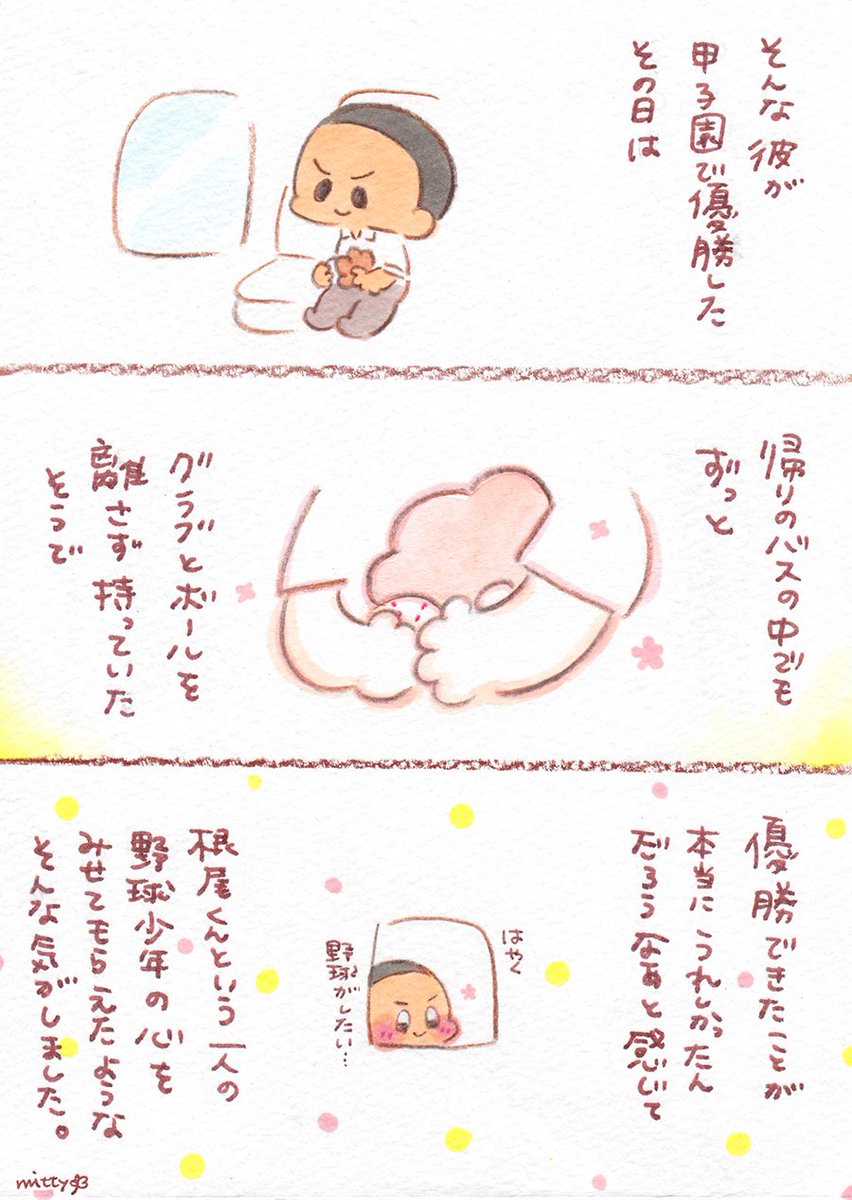 そんな彼が
甲子園で優勝した
その日は
帰りのバスの中でも
ずっと
グラブとボールを
離さず持っていた
そうで
優勝できたことが
本当にうれしかったん
だろうなぁと感じて
はやく
野球がしたい…
根尾くんという一人の
野球少年の心を
みせてもらえたような
そんな気がしました。
mitty93